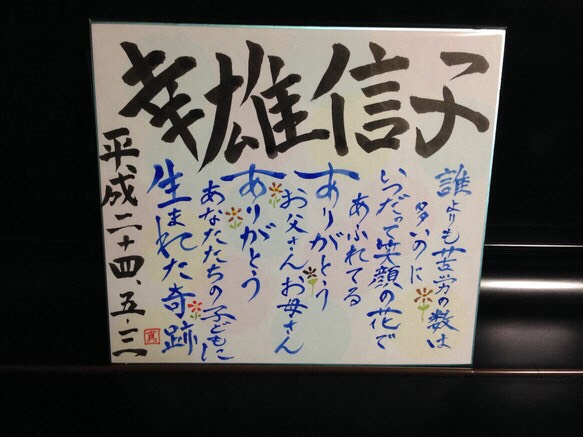 幸雄信子
誰よりも苦労の数は
多いのに
いつだって笑顔の花で
あふれてる
ありがとう
お父さんお母さん
ありがとう
あなたたちの子どもに
生まれた奇跡
平成二十四、五、